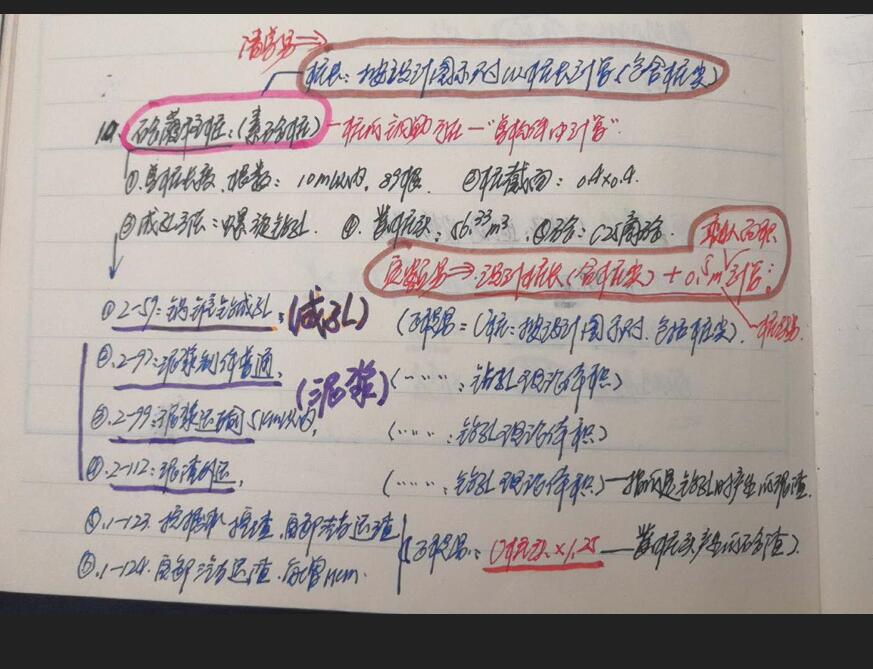 清单量⇒
桩长：按设计图示尺寸以桩长计算(包含桩尖)
19. 砼灌注桩：(素砼桩) — "单构件中计算".
①. 单桩长度、根数：10m以内, 89根. ②桩截面：0.4×0.4.
③成孔方法：螺旋钻孔. ④. 凿桩头：56.33m³. ⑤砼：C25商砼.
定额量⇒设计桩长(含桩尖)+0.5m计算;
①2-59：锅锥钻成孔, (成孔) (工程量=(桩：按设计图示尺寸.包括桩尖).
②.2-97：泥浆制作普通, (泥浆) (……：钻孔理论体积)
③.2-99：泥浆运输5km以内, (……：钻孔理论体积)
④.2-112：泥渣外运, (……：钻孔理论体积)—指的是钻孔时产生的泥渣.
⑤.1-123. 挖掘机挖渣, 自卸汽车运渣
(工程量：桩头×1.25 — 凿桩头产生的砼渣).
⑥.1-124. 自卸汽车运渣. 每增1km.